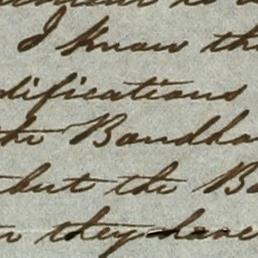 I know th
difications
the Boudda
but the B
they have